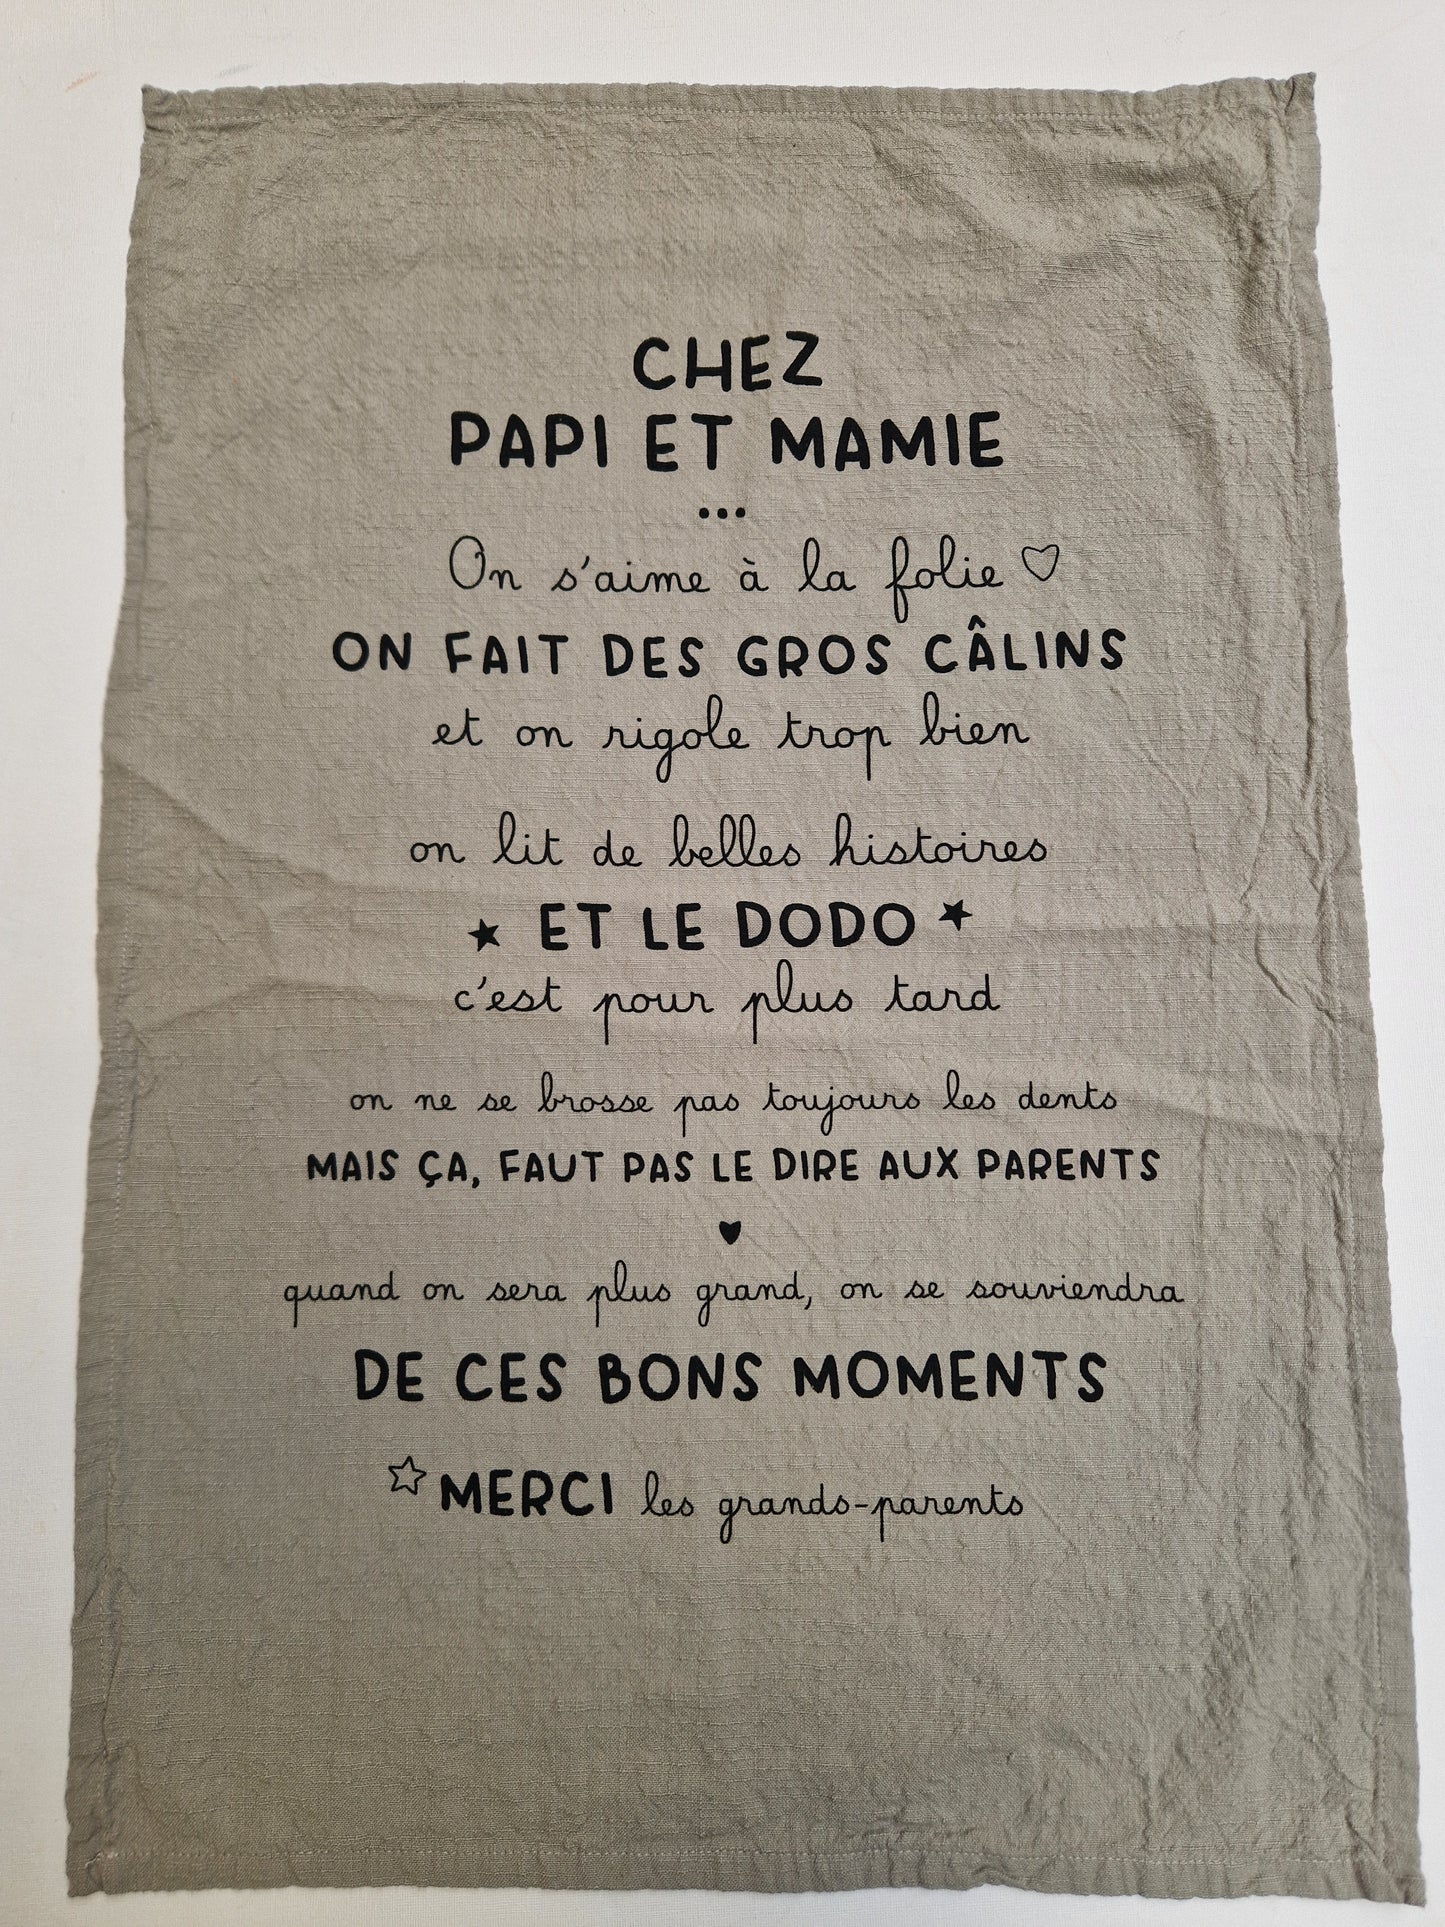 CHEZ
PAPI ET MAMIE
...
On s'aime à la folie
ON FAIT DES GROS CÂLINS
et on rigole trop bien
on lit de belles histoires
ET LE DODO
c'est pour plus tard
on ne se brosse pas toujours les dents
MAIS ÇA, FAUT PAS LE DIRE AUX PARENTS
quand on sera plus grand, on se souviendra
DE CES BONS MOMENTS
MERCI les grands-parents